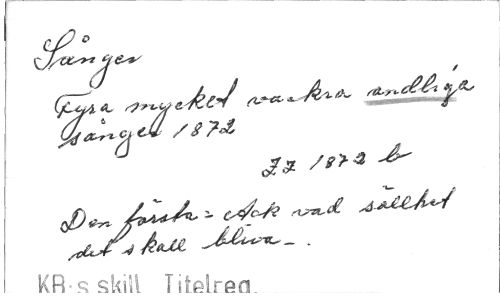 Sånger
Fyra mycket vackra andliga
sånger 1872
ZZ 1872 b
Den första = Ack vad sällhet
det skall bliva -.
KB:s skill. Titelreg.